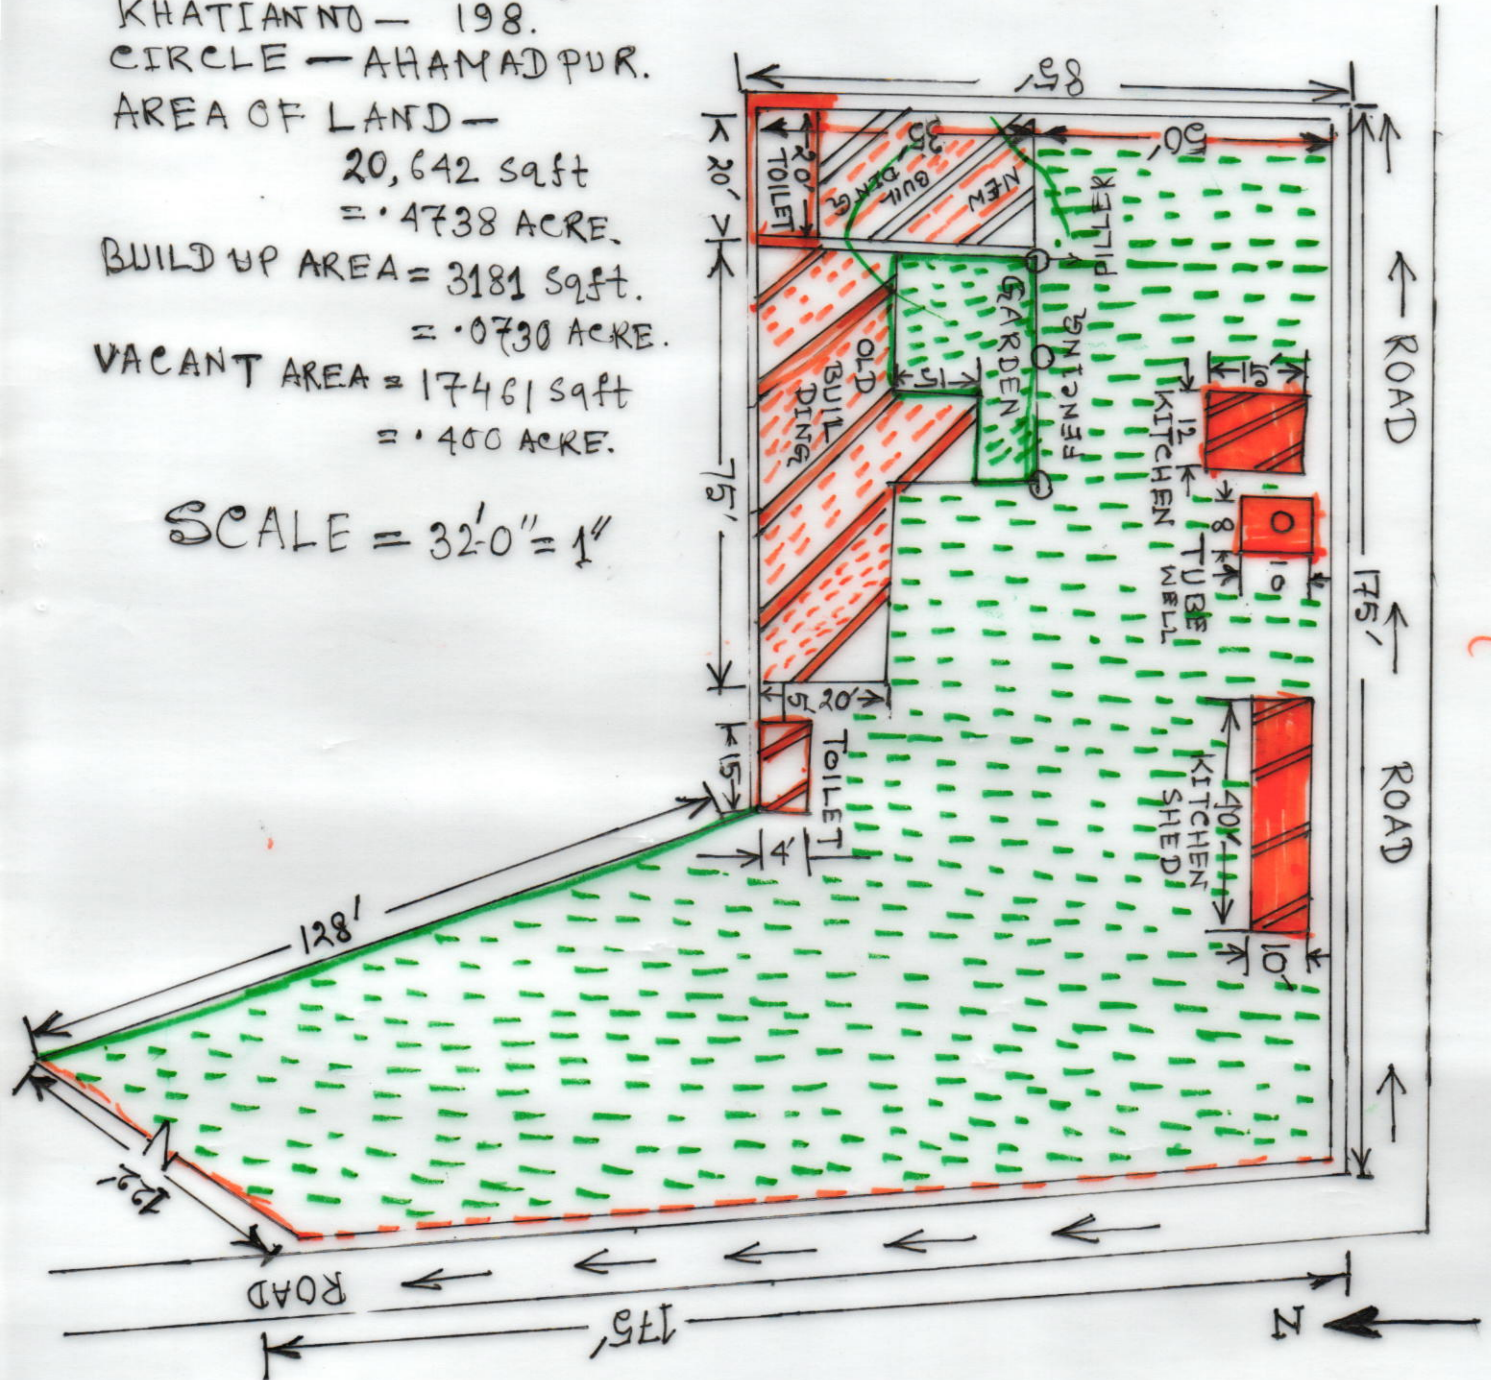 KHATIAN NO — 198.
CIRCLE — AHAMADPUR.
AREA OF LAND —
20,642 sqft
= .4738 ACRE.
BUILD UP AREA = 3181 sqft.
= .0730 ACRE.
VACANT AREA = 17461 sqft
= .400 ACRE.
SCALE = 32'-0" = 1"
85'
20'
20'
TOILET
35'
50'
NEW
BUIL
DING
PILLER
GARDEN
FENCING
OLD
BUIL
DING
15'
75'
15'
12
KITCHEN
8
10
TUBE
WELL
175'
ROAD
ROAD
5'
20'
15'
TOILET
4'
40'
KITCHEN
SHED
10'
128'
122'
ROAD
175'
N